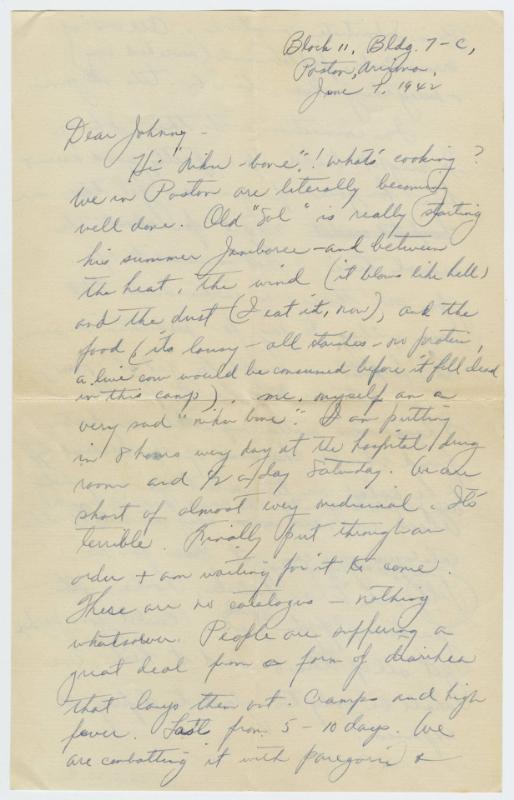 Block 11, Bldg. 7-C,
Poston, Arizona,
June 7, 1942
Dear Johnny -
Hi "Niku-bone"! What's cooking?
We in Poston are literally becoming
well done. Old "Sol" is really starting
his summer Jamboree - and between
the heat, the wind (it blows like hell)
and the dust (I eat it, now), and the
food (its lousy - all starches - no protein,
a live cow would be consumed before it fell dead
in this camp). me, myself an a
very sad "niku bone". I am putting
in 8 hours every day at the hospital drug
room and 1/2 a day Saturday. We are
short of almost every medicinal. It's
terrible. Finally put through an
order + am waiting for it to come.
There are no catalogus - nothing
whatsoever. People are suffering a
great deal from a form of diarrhea
that lays them out. Cramps and high
fever. Lasts from 5 - 10 days. We
are combatting it with paregoric +